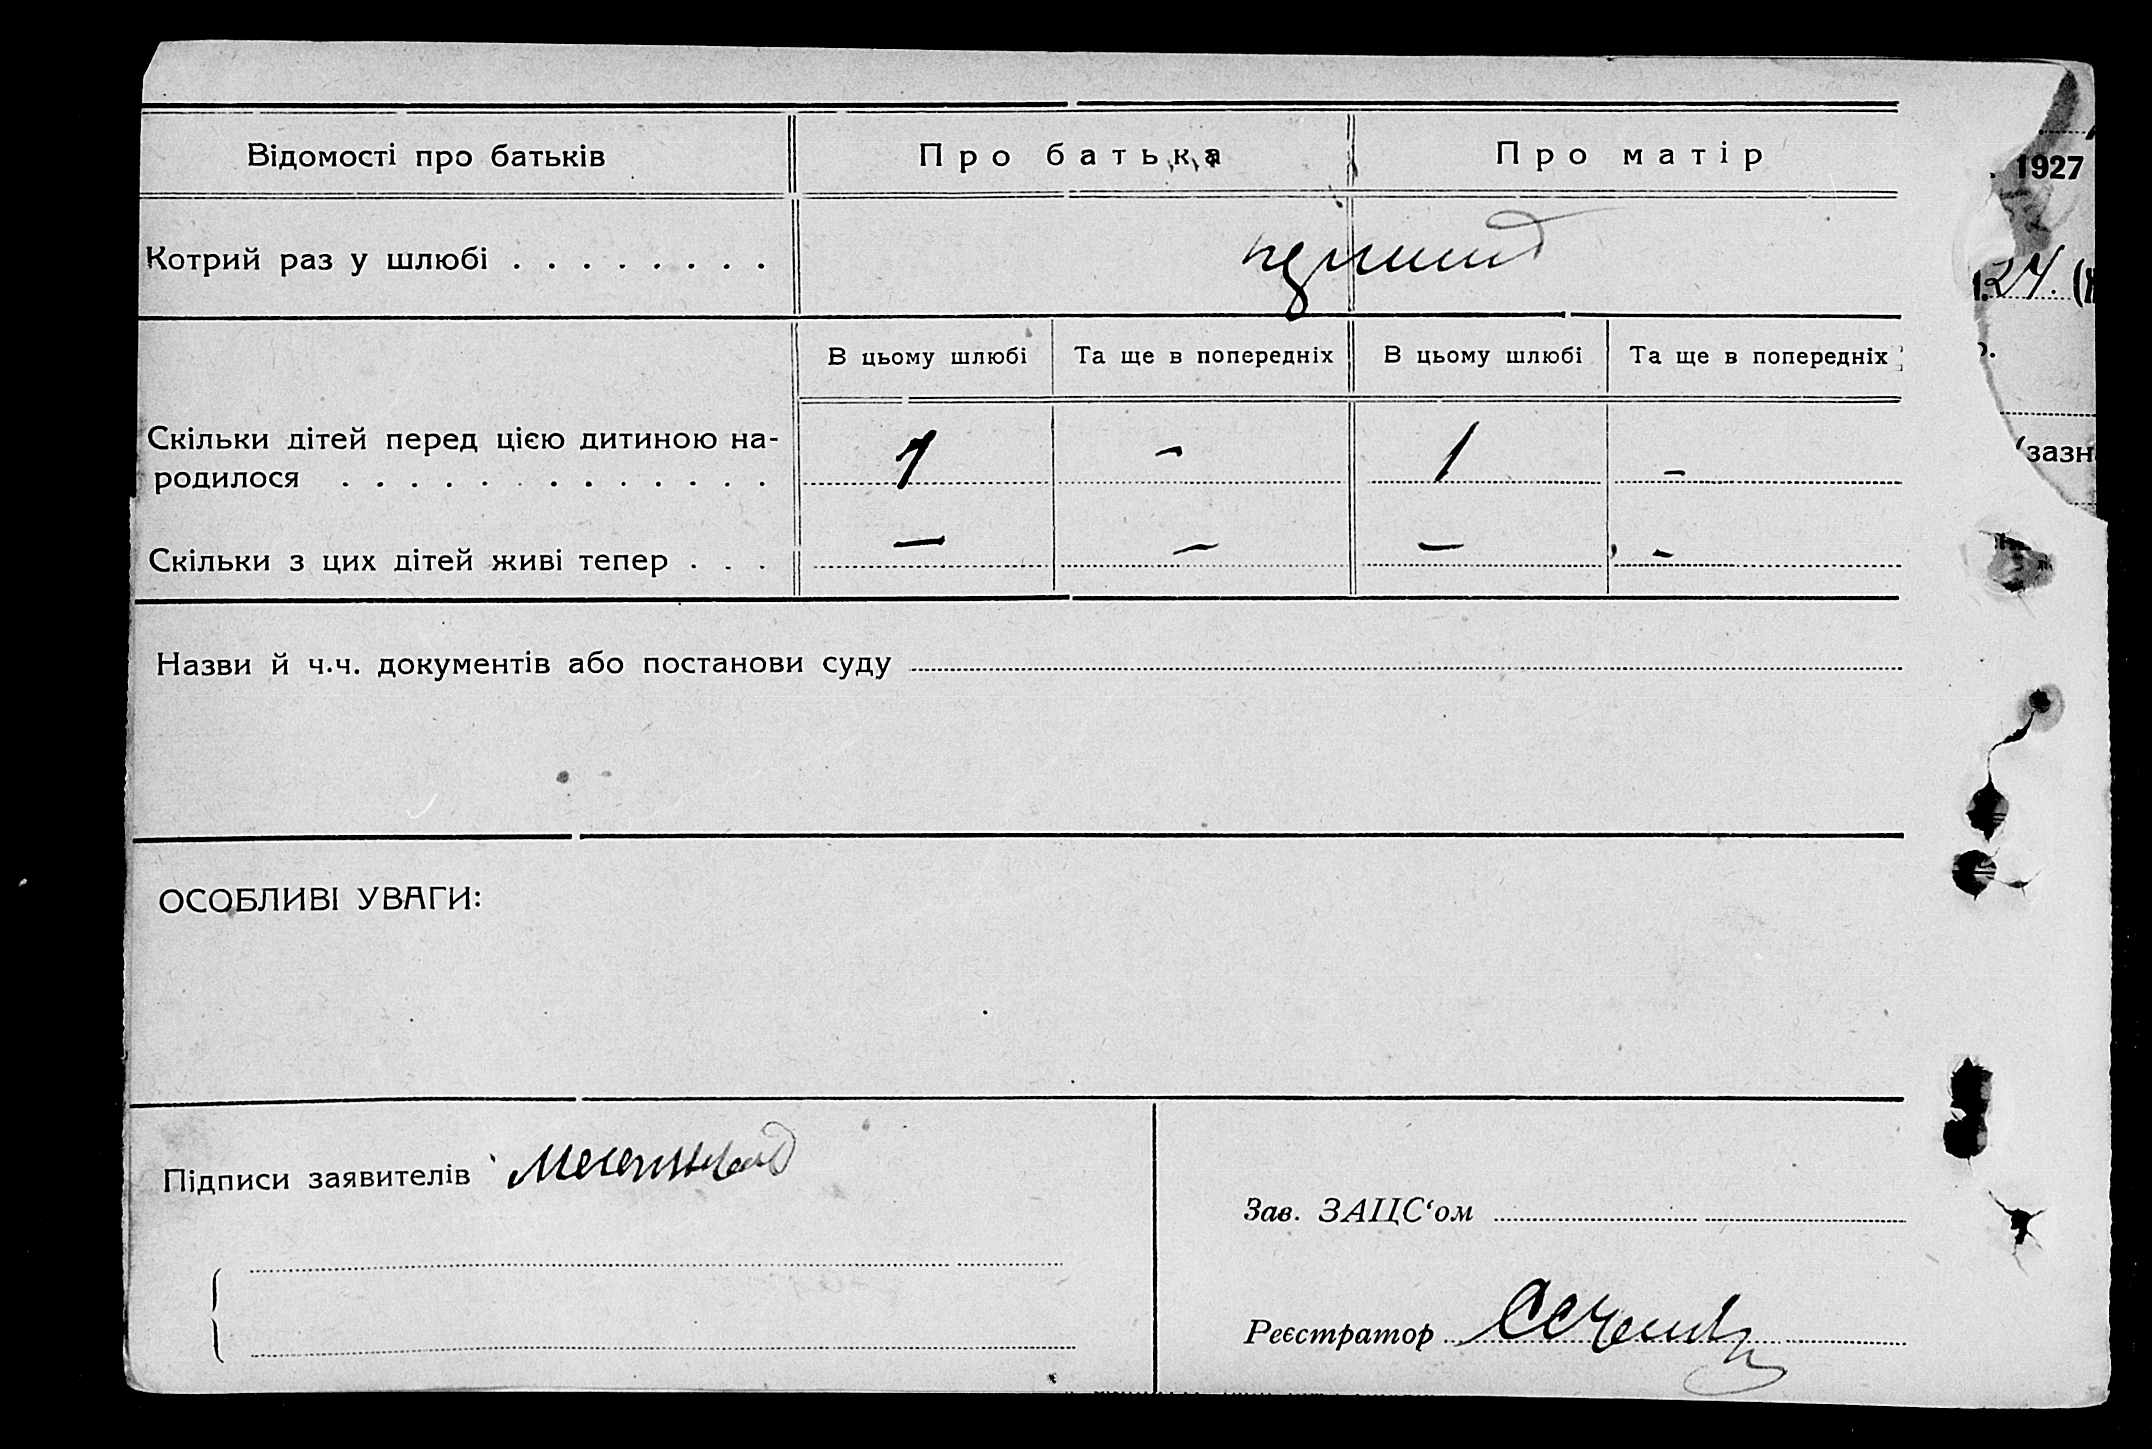 Відомості про батьків
Про батька
Про матір
1927
Котрий раз у шлюбі . . . . . . . .
24. (
В цьому шлюбі
Та ще в попередніх
В цьому шлюбі
Та ще в попередніх
Скільки дітей перед цією дитиною на-
родилося . . . . . . . . . . . . .
1 - 1 -
(зазн
Скільки з цих дітей живі тепер . . .
— — — -
Назви й ч.ч. документів або постанови суду
ОСОБЛИВІ УВАГИ:
Підписи заявителів
Зав. ЗАЦС‘ом
Реєстратор